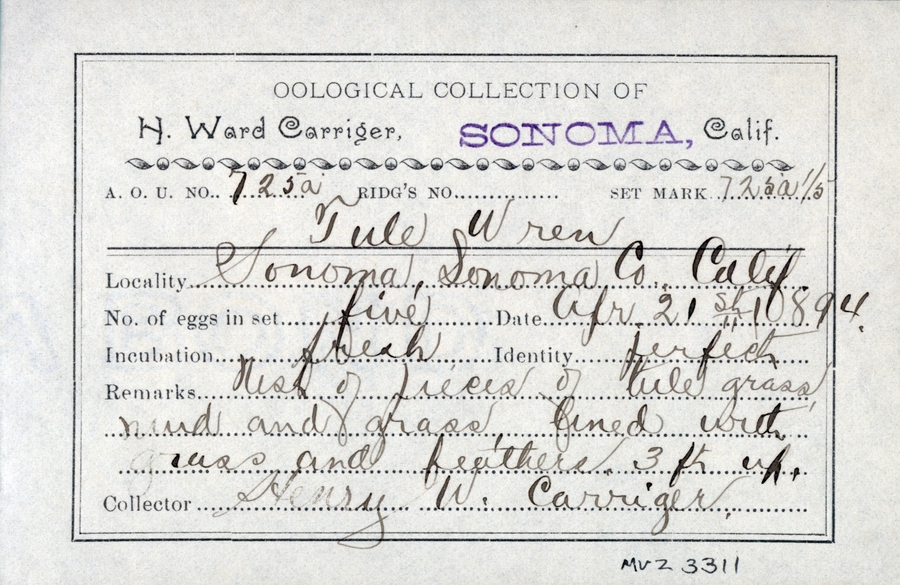 OOLOGICAL COLLECTION OF
H. Ward Carriger, SONOMA, Calif.
A. O. U. NO. 725a RIDG'S NO. SET MARK 725a 1/5
Tule Wren
Locality Sonoma, Sonoma Co. Calif.
No. of eggs in set five Date Apr. 21st 1894.
Incubation fresh Identity perfect
Remarks Nest of pieces of tule grass
mud and grass, lined with
grass and feathers. 3 ft up.
Collector Henry W. Carriger.
MVZ 3311